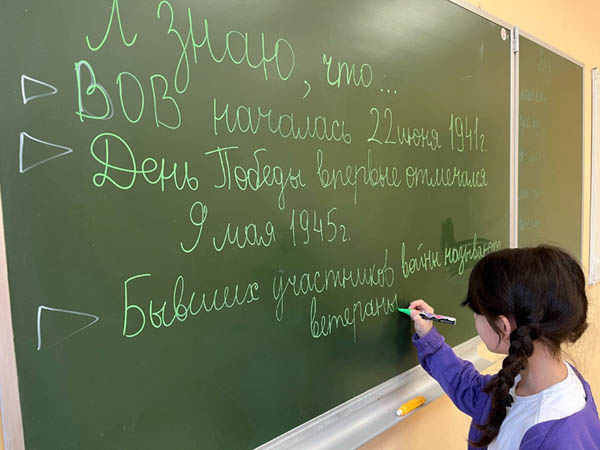 Я знаю, что...
ВОВ началась 22 июня 1941г.
День Победы впервые отмечался
9 мая 1945г.
Бывших участников войны называют
ветераны